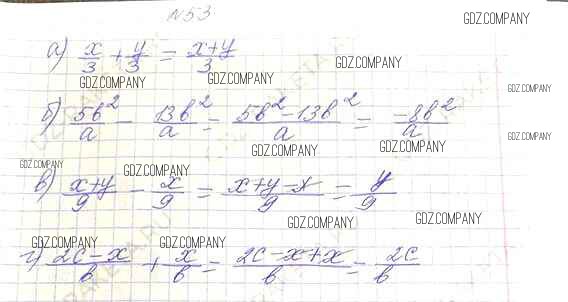 N53
GDZ.COMPANY
а) x/3 + y/3 = x+y/3
GDZ.COMPANY
GDZ.COMPANY
GDZ.COMPANY
GDZ.COMPANY
б) 5b²/a - 13b²/a = 5b²-13b²/a = -8b²/a
GDZ.COMPANY
GDZ.COMPANY
GDZ.COMPANY
GDZ.COMPANY
GDZ.COMPANY
в) x+y/9 - x/9 = x+y-x/9 = y/9
GDZ.COMPANY
GDZ.COMPANY
GDZ.COMPANY
GDZ.COMPANY
г) 2c-x/b + x/b = 2c-x+x/b = 2c/b